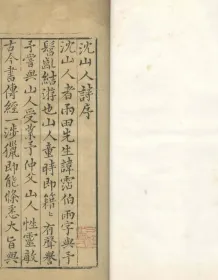 沈山人詩序
沈山人者雨田先生諱霑伯雨字與予
髫齓結游也山人童時即籍〻有聲嘗
予嘗與山人受業予仲父山人性靈敏
古今書傳經一涉獵即能條悉大旨與